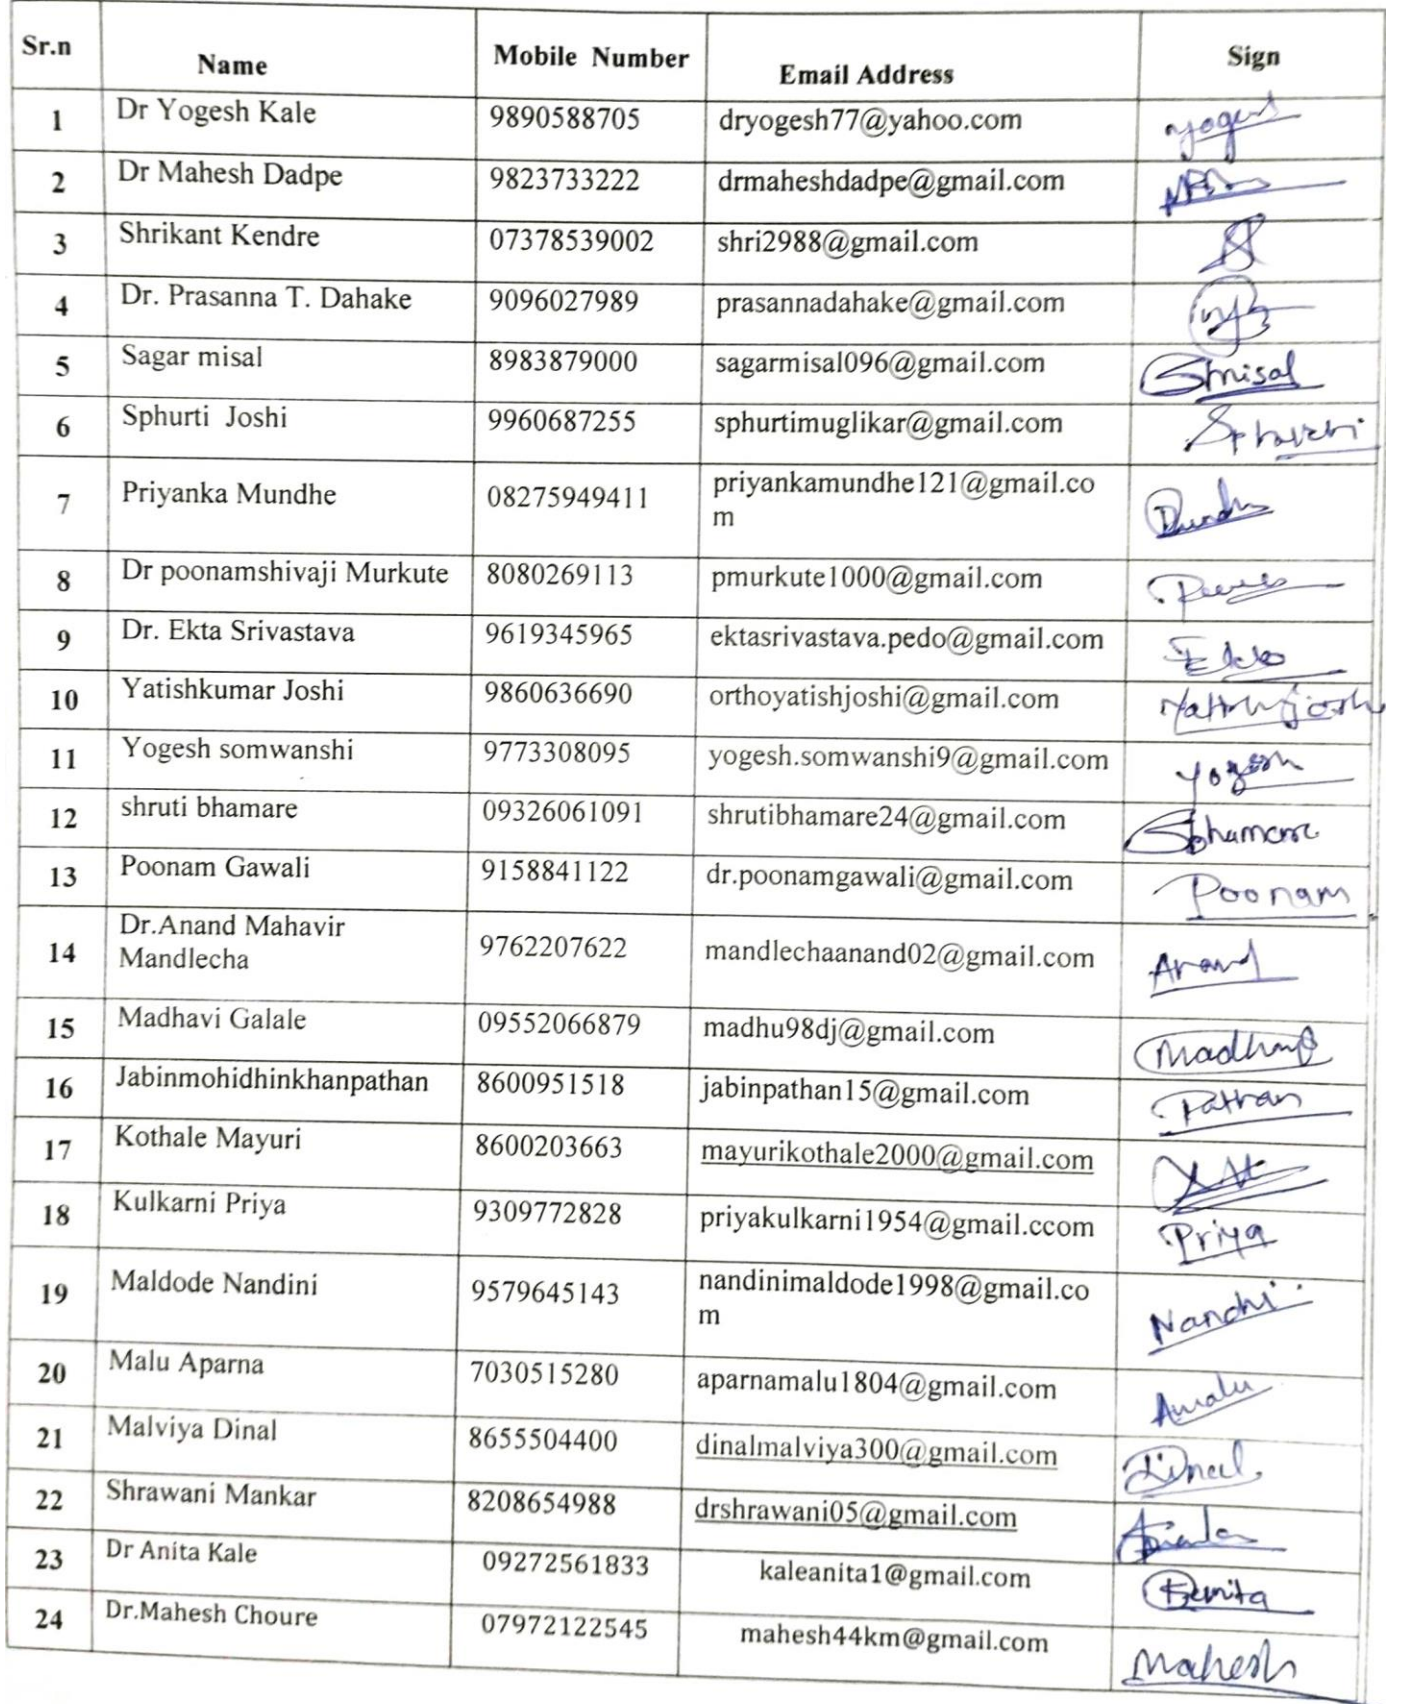 Sr.n Name Mobile Number Email Address Sign
1 Dr Yogesh Kale 9890588705 dryogesh77@yahoo.com yogesh
2 Dr Mahesh Dadpe 9823733222 drmaheshdadpe@gmail.com
3 Shrikant Kendre 07378539002 shri2988@gmail.com
4 Dr. Prasanna T. Dahake 9096027989 prasannadahake@gmail.com
5 Sagar misal 8983879000 sagarmisal096@gmail.com Smisal
6 Sphurti Joshi 9960687255 sphurtimuglikar@gmail.com
7 Priyanka Mundhe 08275949411 priyankamundhe121@gmail.co
m
8 Dr poonamshivaji Murkute 8080269113 pmurkute1000@gmail.com
9 Dr. Ekta Srivastava 9619345965 ektasrivastava.pedo@gmail.com
10 Yatishkumar Joshi 9860636690 orthoyatishjoshi@gmail.com
11 Yogesh somwanshi 9773308095 yogesh.somwanshi9@gmail.com Yogesh
12 shruti bhamare 09326061091 shrutibhamare24@gmail.com
13 Poonam Gawali 9158841122 dr.poonamgawali@gmail.com Poonam
14 Dr.Anand Mahavir
Mandlecha 9762207622 mandlechaanand02@gmail.com Anand
15 Madhavi Galale 09552066879 madhu98dj@gmail.com
16 Jabinmohidhinkhanpathan 8600951518 jabinpathan15@gmail.com Pathan
17 Kothale Mayuri 8600203663 mayurikothale2000@gmail.com
18 Kulkarni Priya 9309772828 priyakulkarni1954@gmail.ccom Priya
19 Maldode Nandini 9579645143 nandinimaldode1998@gmail.co
m
20 Malu Aparna 7030515280 aparnamalu1804@gmail.com Amalu
21 Malviya Dinal 8655504400 dinalmalviya300@gmail.com Dinal
22 Shrawani Mankar 8208654988 drshrawani05@gmail.com
23 Dr Anita Kale 09272561833 kaleanita1@gmail.com
24 Dr.Mahesh Choure 07972122545 mahesh44km@gmail.com Mahesh